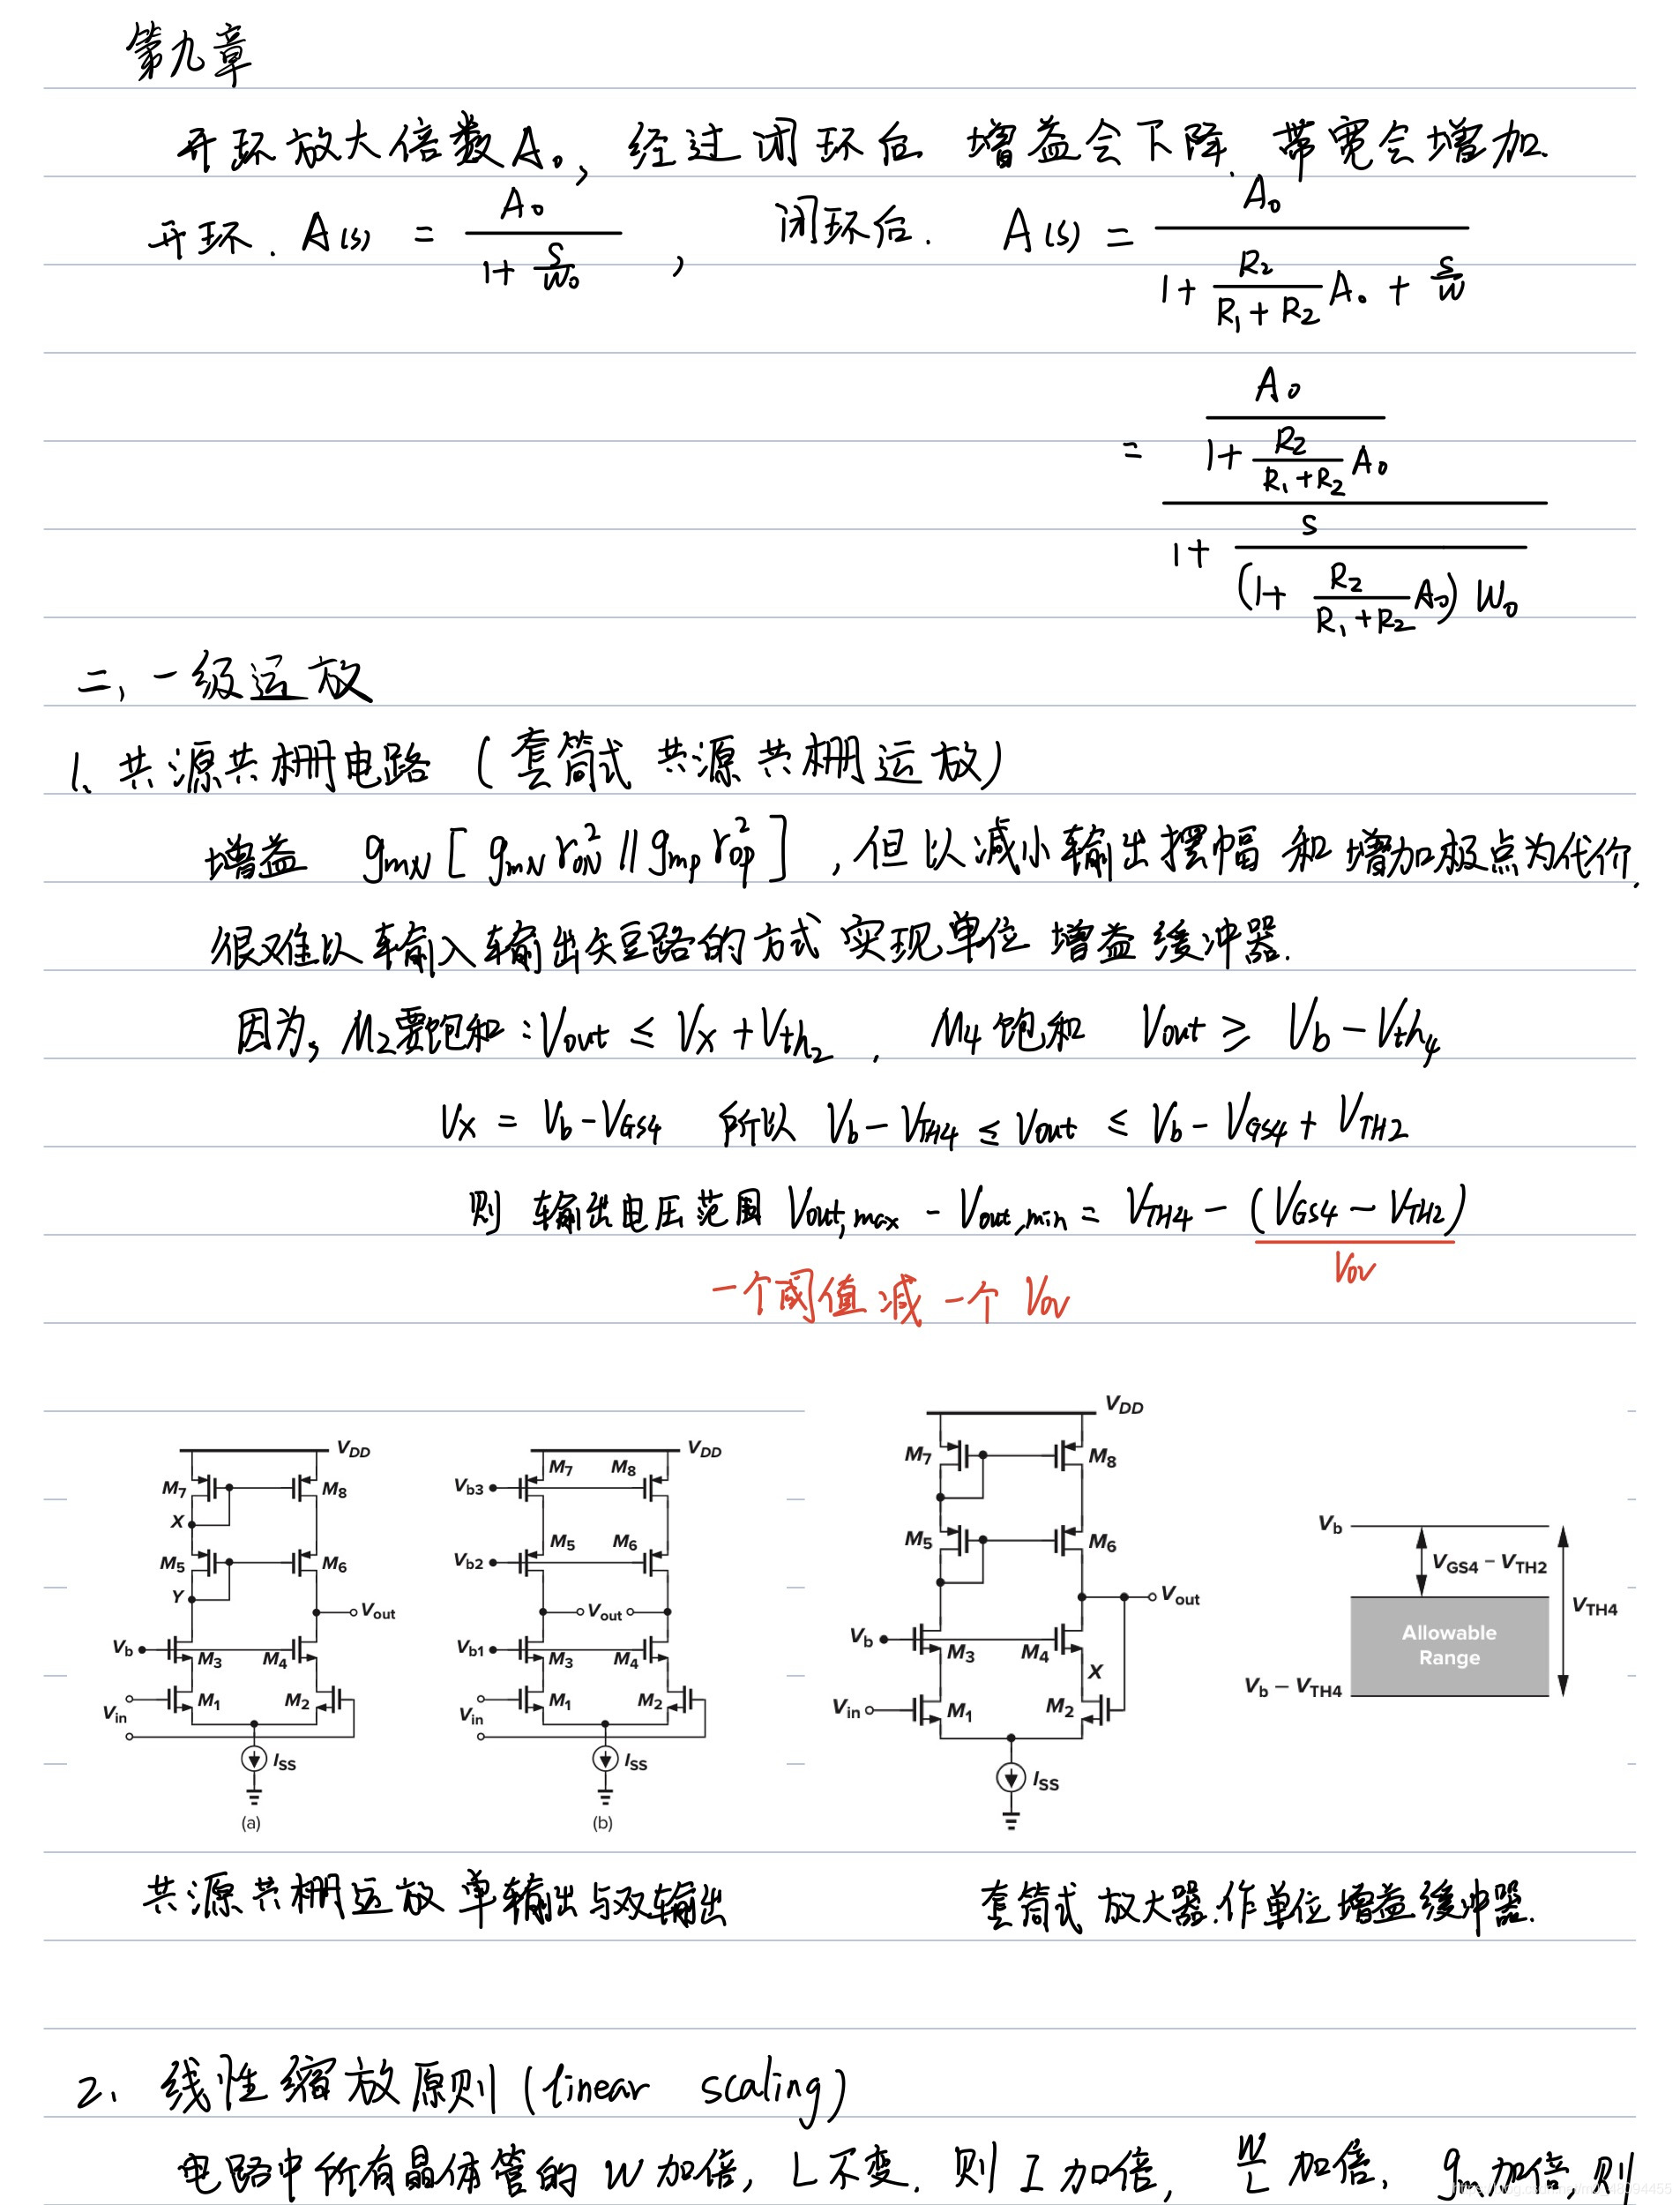 第九章
开环放大倍数A₀, 经过闭环后 增益会下降. 带宽会增加.
开环. A(s) = A₀ / (1 + s/W₀) , 闭环后. A(s) = A₀ / (1 + R₂/(R₁+R₂) A₀ + s/W)
= (A₀ / (1 + R₂/(R₁+R₂) A₀)) / (1 + s / ((1 + R₂/(R₁+R₂) A₀) W₀))
二、一级运放
1. 共源共栅电路 (套筒式 共源共栅运放)
增益 gmN [ gmN roN² // gmp rop² ] , 但以减小输出摆幅 和 增加极点为代价.
很难以输入输出短路的方式 实现单位 增益缓冲器.
因为, M2要饱和: Vout ≤ Vx + Vth2 . M4饱和 Vout ≥ Vb - Vth4
Vx = Vb - VGS4 所以 Vb - VTH4 ≤ Vout ≤ Vb - VGS4 + VTH2
则 输出电压范围 Vout,max - Vout,min = VTH4 - (VGS4 - VTH2)
Vov
一个阈值减一个 Vov
VDD
M7 M8
X
M5 M6
Y
Vout
Vb
M3 M4
M1 M2
Vin
ISS
(a)
VDD
M7 M8
Vb3
M5 M6
Vb2
Vout
Vb1
M3 M4
M1 M2
Vin
ISS
(b)
VDD
M7 M8
M5 M6
Vout
Vb
M3 M4
X
Vin
M1 M2
ISS
Vb
VGS4 − VTH2
VTH4
Allowable
Range
Vb − VTH4
共源共栅运放 单输出与双输出
套筒式 放大器.作单位增益缓冲器.
2. 线性缩放原则 (linear scaling)
电路中所有晶体管的 W 加倍, L 不变. 则 I 加倍, W/L 加倍, gm加倍, 则